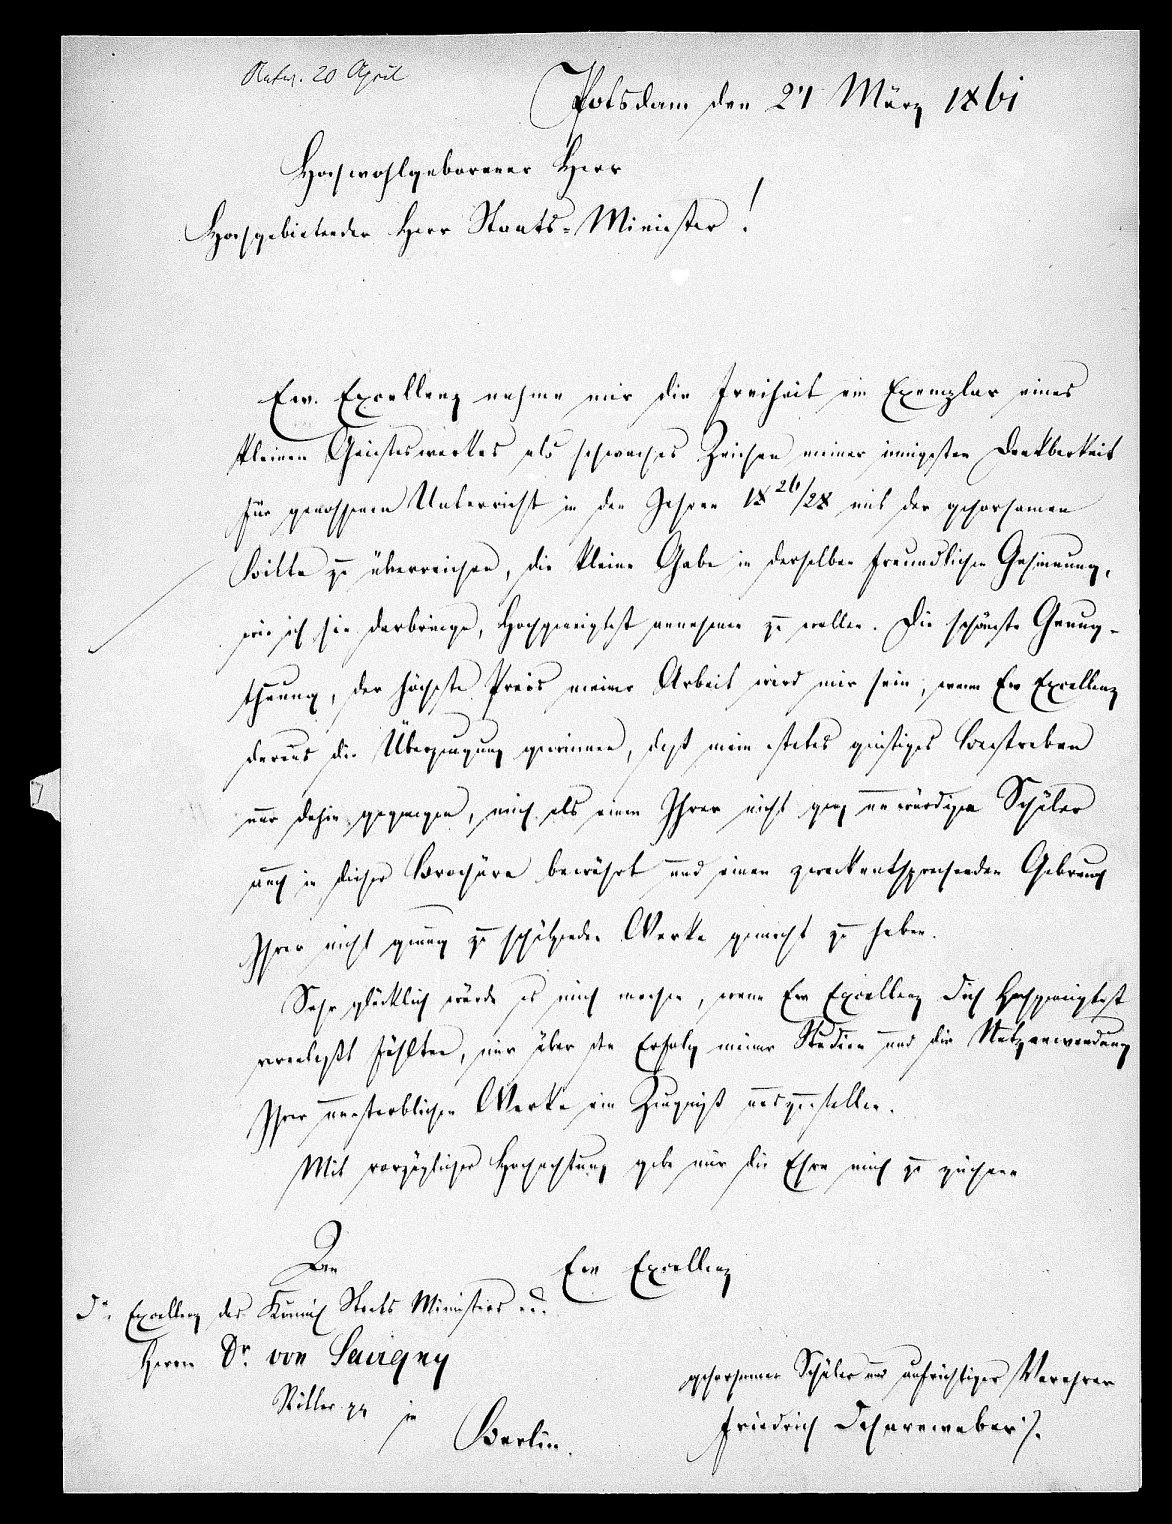 Antw. 20 April
Potsdam den 21 März 1861
Hochwohlgeborener Herr
Hochgebietender Herr Staats-Minister!
Ew. Excellenz nehme mir die Freiheit ein Exemplar eines
kleinen Geisteswerkes als schwaches Zeichen meiner innigsten Dankbarkeit
für genossenen Unterricht in den Jahren 18 26/28 mit der gehorsamen
Bitte zu überreichen, die kleine Gabe in derselben freundlichen Gesinnung,
wie ich sie darbringe, Hochgeneigtest annehmen zu wollen. Die schönste Genug-
thuung, der höchste Preis meiner Arbeit wird mir sein, wenn Ew Excellenz
daraus die Überzeugung gewinnen, daß mein stetes geistiges Bestreben
nur dahin gegangen, mich als einen Ihrer nicht ganz unwürdigen Schüler
auch in dieser Brochüre bewährt und einen zweckentsprechenden Gebrauch
Ihrer nicht genug zu schätzenden Werke gemacht zu haben.
Sehr glücklich würde es mich machen, wenn Ew Excellenz Sich Hochgeneigtest
veranlaßt fühlten, mir über den Erfolg meiner Studien und die Nutzanwendung
Ihrer unsterblichen Werke ein Zeugniß auszustellen.
Mit vorzüglicher Hochachtung gebe mir die Ehre mich zu zeichnen
An
Ew Excellenz
Sr. Excellenz des Königl Staats Ministers
Herrn Dr. von Savigny
gehorsamer Schüler und aufrichtiger Verehrer
Ritter in
Friedrich Scharnweber
Berlin.